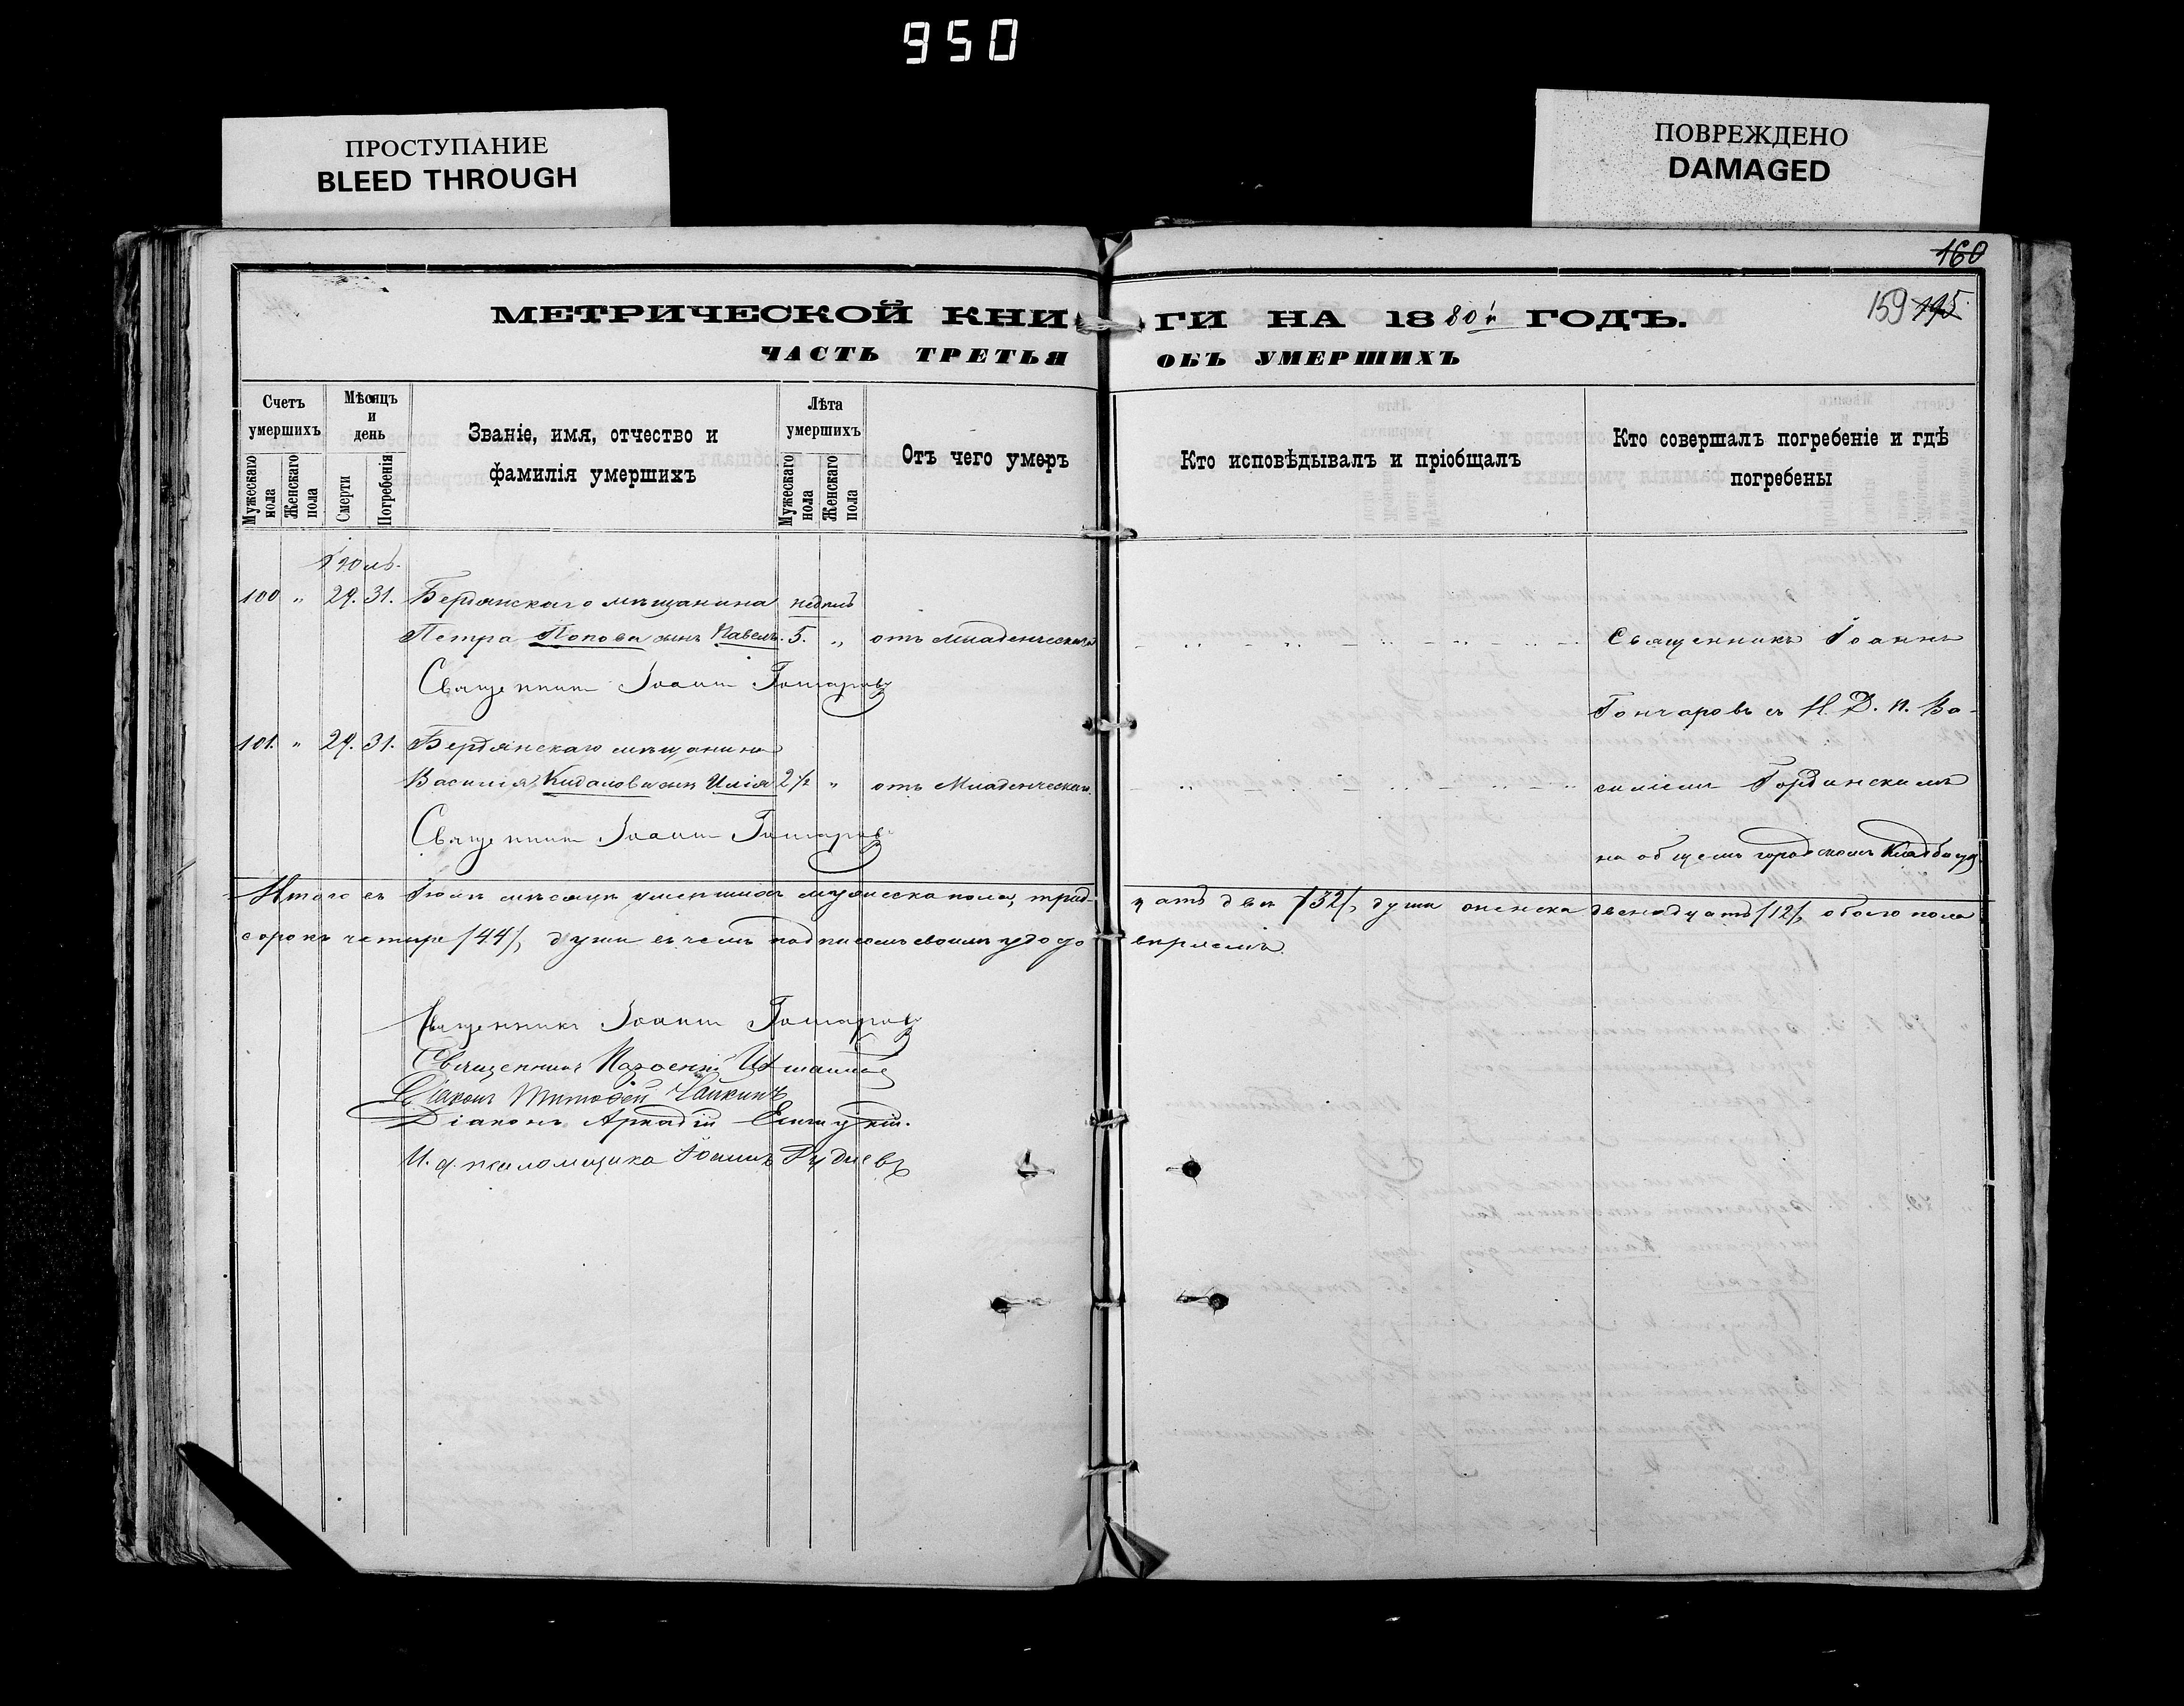 950
ПРОСТУПАНИЕ
BLEED THROUGH
ПОВРЕЖДЕНО
DAMAGED
160
159 195
МЕТРИЧЕСКОЙ КНИГИ НА 1880й ГОДЪ.
ЧАСТЬ ТРЕТЬЯ ОБЪ УМЕРШИХЪ
Счетъ умершихъ
Мужескаго пола
Женскаго пола
Мѣсяцъ и день
Смерти
Погребенія
Званіе, имя, отчество и фамилія умершихъ
Лѣта умершихъ
Мужескаго пола
Женскаго пола
Отъ чего умеръ
Кто исповѣдывалъ и пріобщалъ
Кто совершалъ погребеніе и гдѣ погребены
Іюль.
100 " 29. 31. Бердянскаго мѣщанина недѣль
Петра Попова сынъ Павелъ. 5. " отъ младенческаго
Священникъ Іоаннъ
Священникъ Іоаннъ Гончаровъ
Гончаровъ съ И. Д. П. Ва-
101. " 29. 31. Бердянскаго мѣщанина
Василія сынъ Илія 2 1/2 " отъ Младенческаго.
силіемъ
Священникъ Іоаннъ Гончаровъ
на общемъ городскомъ кладбищѣ.
Итого въ Іюлѣ мѣсяцѣ умершихъ мужеска пола, тридцать двѣ /32/, души женска двенадцать /12/, обоего пола
сорокъ четыре /44/, души въ чемъ подписомъ своимъ
Священникъ Іоаннъ Гончаровъ
Священникъ
Діаконъ Тимофей Чайкинъ
Діаконъ Аркадій
И. д. псаломщика Іоаннъ Рудневъ